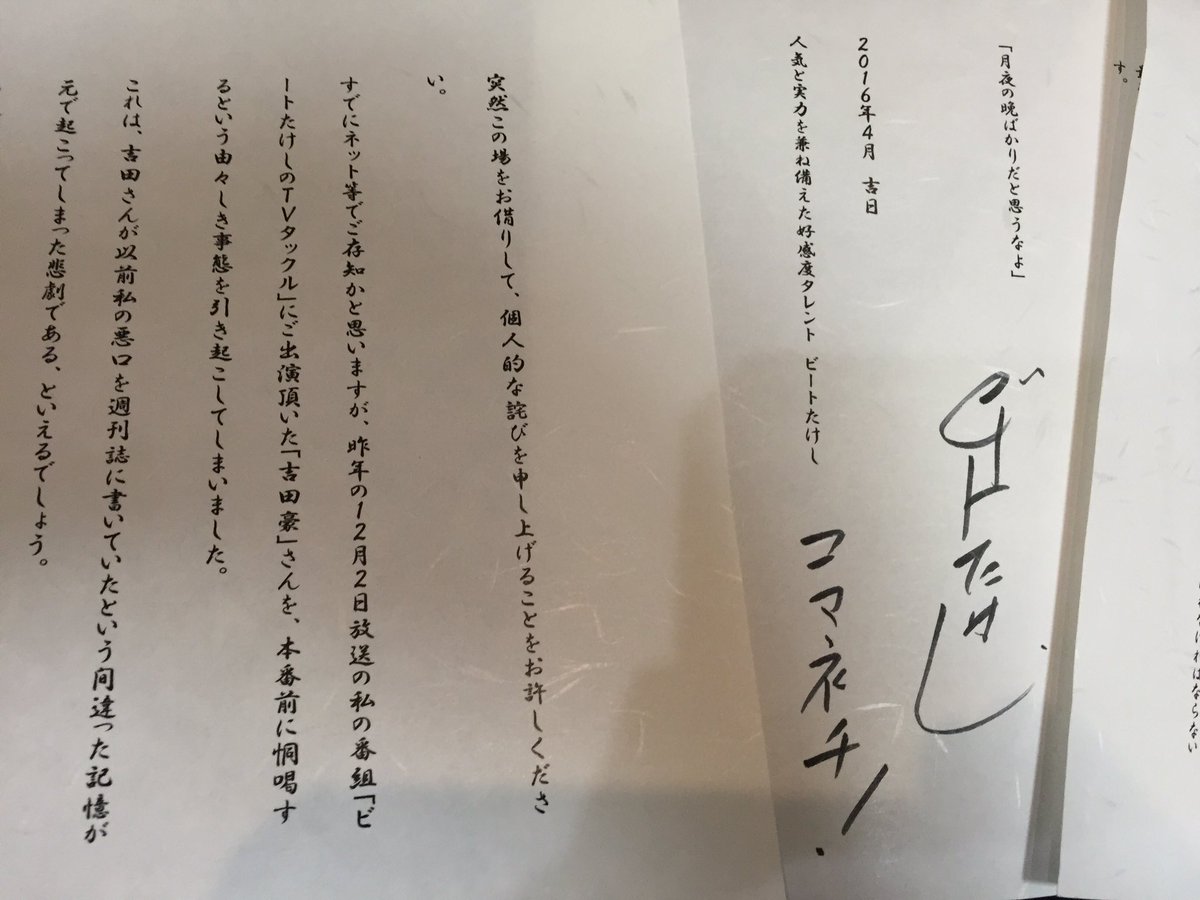 す。
ければならない
「月夜の晩ばかりだと思うなよ」
2016年4月　吉日
人気と実力を兼ね備えた好感度タレント　ビートたけし
ビートたけし
コマネチ!
突然この場をお借りして、個人的な詫びを申し上げることをお許しくださ
い。
すでにネット等でご存知かと思いますが、昨年の12月2日放送の私の番組「ビ
ートたけしのTVタックル」にご出演頂いた「吉田豪」さんを、本番前に恫喝す
るという由々しき事態を引き起こしてしまいました。
これは、吉田さんが以前私の悪口を週刊誌に書いていたという間違った記憶が
元で起こってしまった悲劇である、といえるでしょう。